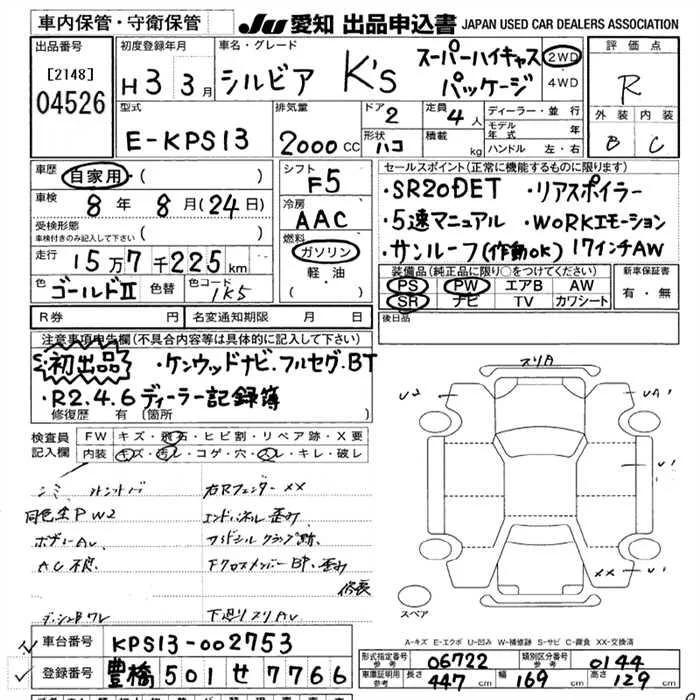 車内保管・守衛保管 JU 愛知 出品申込書 JAPAN USED CAR DEALERS ASSOCIATION
出品番号 [2148] 04526
初度登録年月 H3 3月
車名・グレード シルビア K's スーパーハイキャスパッケージ
2WD 4WD
評価点 R
外装 B 内装 C
型式 E-KPS13
排気量 2000CC
ドア 2
形状 ハコ
定員 4人
積載 kg
ディーラー・並行
モデル年式 年
ハンドル 左・右
車歴 自家用・( )
車検 8年8月(24日)
受検形態 車検付きのみ記入して下さい ( )
走行 15万7千225km
色 ゴールドⅡ 色替 色コード 1K5
シフト F5
冷房 AAC
燃料 ガソリン 軽油
セールスポイント(正常に機能するものに限ります)
・SR20DET ・リアスポイラー
・5速マニュアル ・WORKエモーション
・サンルーフ(作動OK) 17インチAW
装備品(純正品に限り○をつけてください)
PS PW エアB AW
SR ナビ TV カワシート
新車保証書 有・無
R券 円 名変通知期限 月 日
後日品
注意事項申告欄(不具合内容等は具体的に記入して下さい)
初出品 ・ケンウッドナビ.フルセグ.BT
・R2.4.6ディーラー記録簿
修復歴 有 (箇所
検査員記入欄
FW キズ・飛石・ヒビ割・リペア跡・X要
内装 キズ・汚レ・コゲ・穴・スレ・キレ・破レ
右Rフェンダー XX
同色全PW2 エンドパネル歪み
ボディーAU
AC不良 下クロスメンバーBP、歪み
修表
下廻りスリAU
スリク
U2 UA1
U1
XX U1
スペア
A-キズ E-エクボ U-凹み W-補修跡 S-サビ C-腐食 XX-交換済
車台番号 KPS13-002753
登録番号 豊橋 501 せ 7766
形式指定番号 参考 06722 類別区分番号 参考 0144
車庫証明用 参考 長さ 447cm 幅 169cm 高さ 129cm